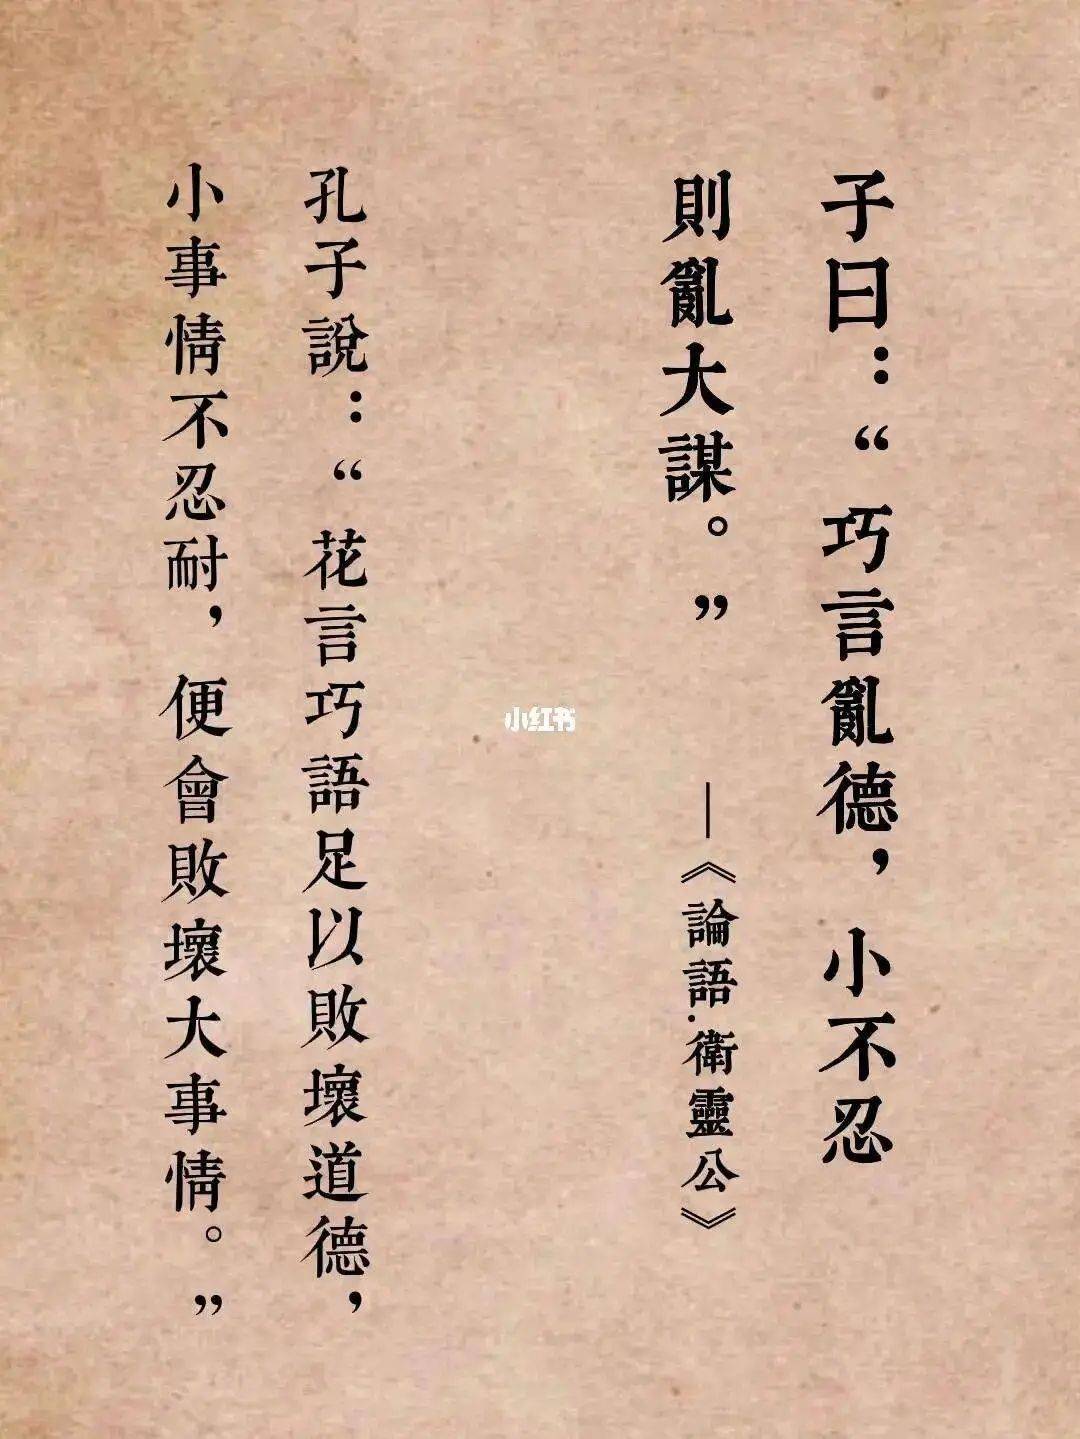 子曰：“巧言亂德，小不忍
則亂大謀。”
—《論語.衛靈公》
孔子說：“花言巧語足以敗壞道德，
小事情不忍耐，便會敗壞大事情。”
小红书